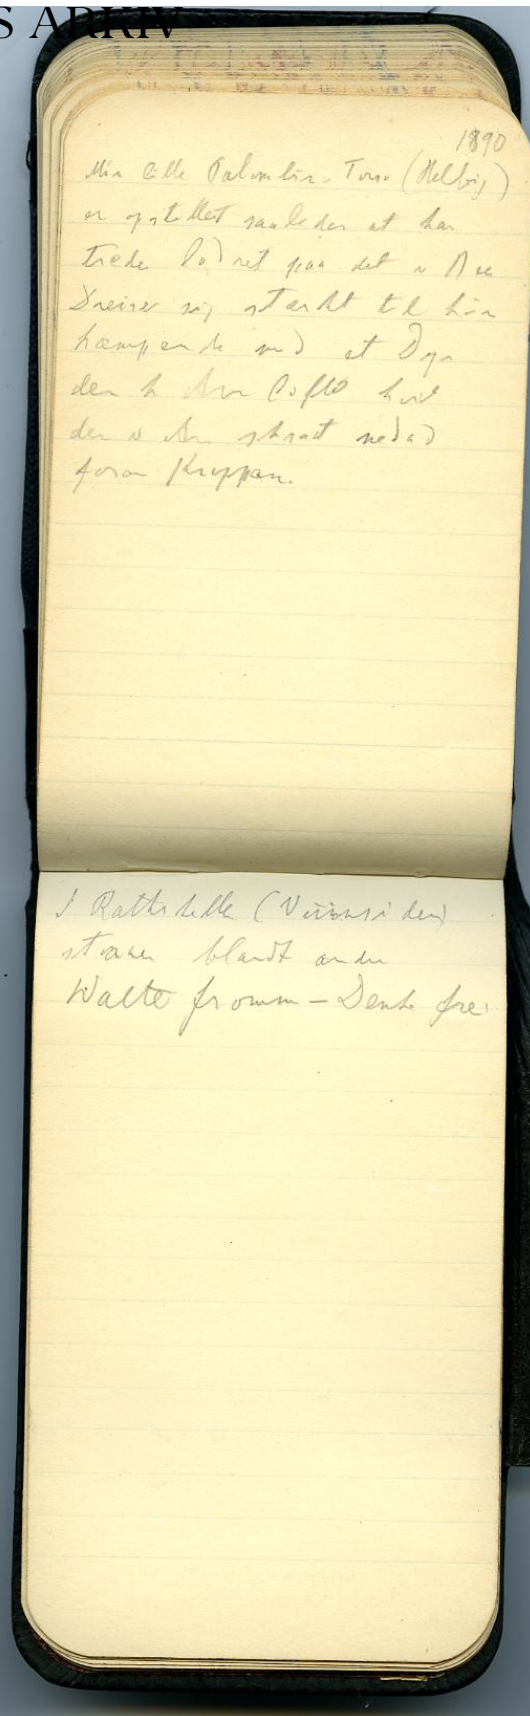 S ARKIV
1890
Min lille Palombin-Torso (Helbig)
er opstillet saaledes at han
træder lodret paa det v Been
Dreier sig stærkt til hø
kæmpende med at Dyr
den h Arm løftet
den v Arm skraat nedad
foran Kroppen.
I Rathskelle
staaer blandt andre
Walte fromm – Denke frei